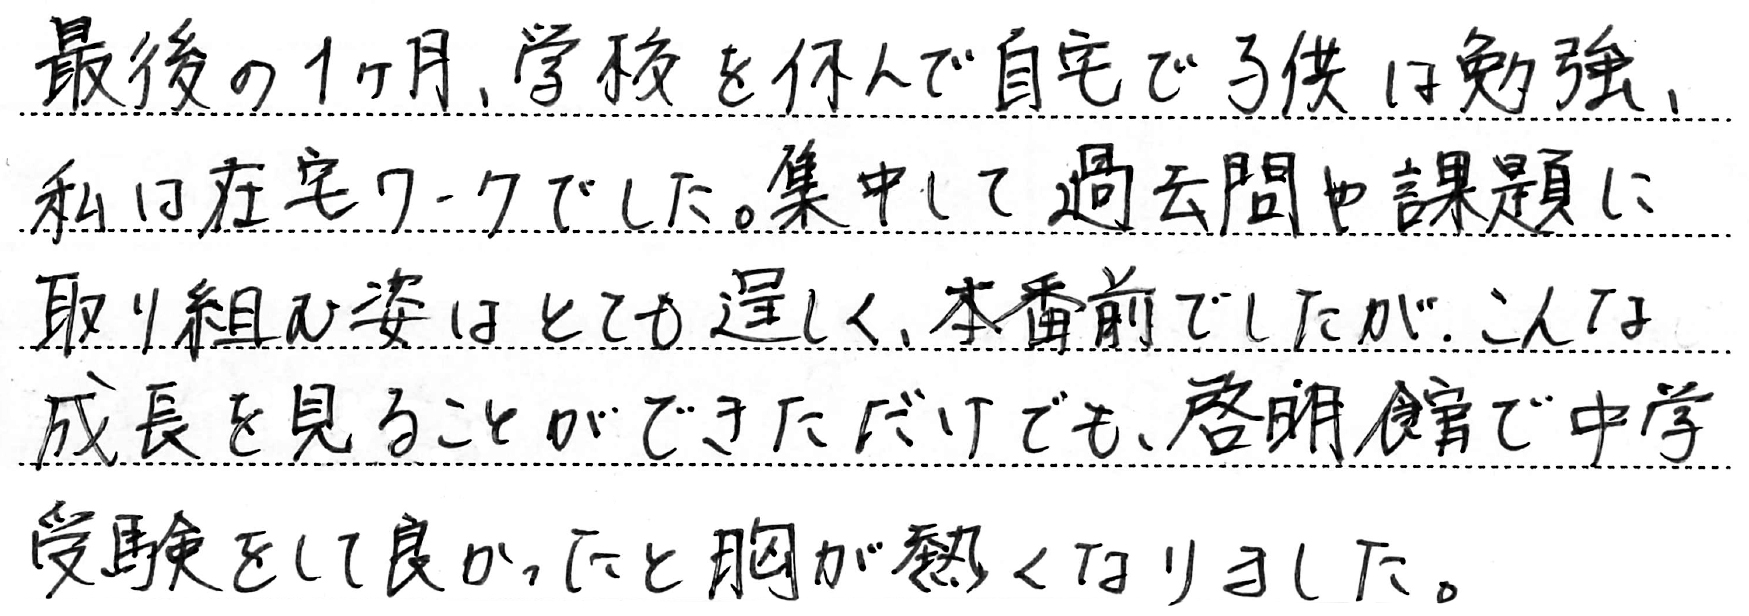 最後の1ヶ月、学校を休んで自宅で子供は勉強、
私は在宅ワークでした。集中して過去問や課題に
取り組む姿はとても逞しく、本番前でしたが、こんな
成長を見ることができただけでも、啓明館で中学
受験をして良かったと胸が熱くなりました。